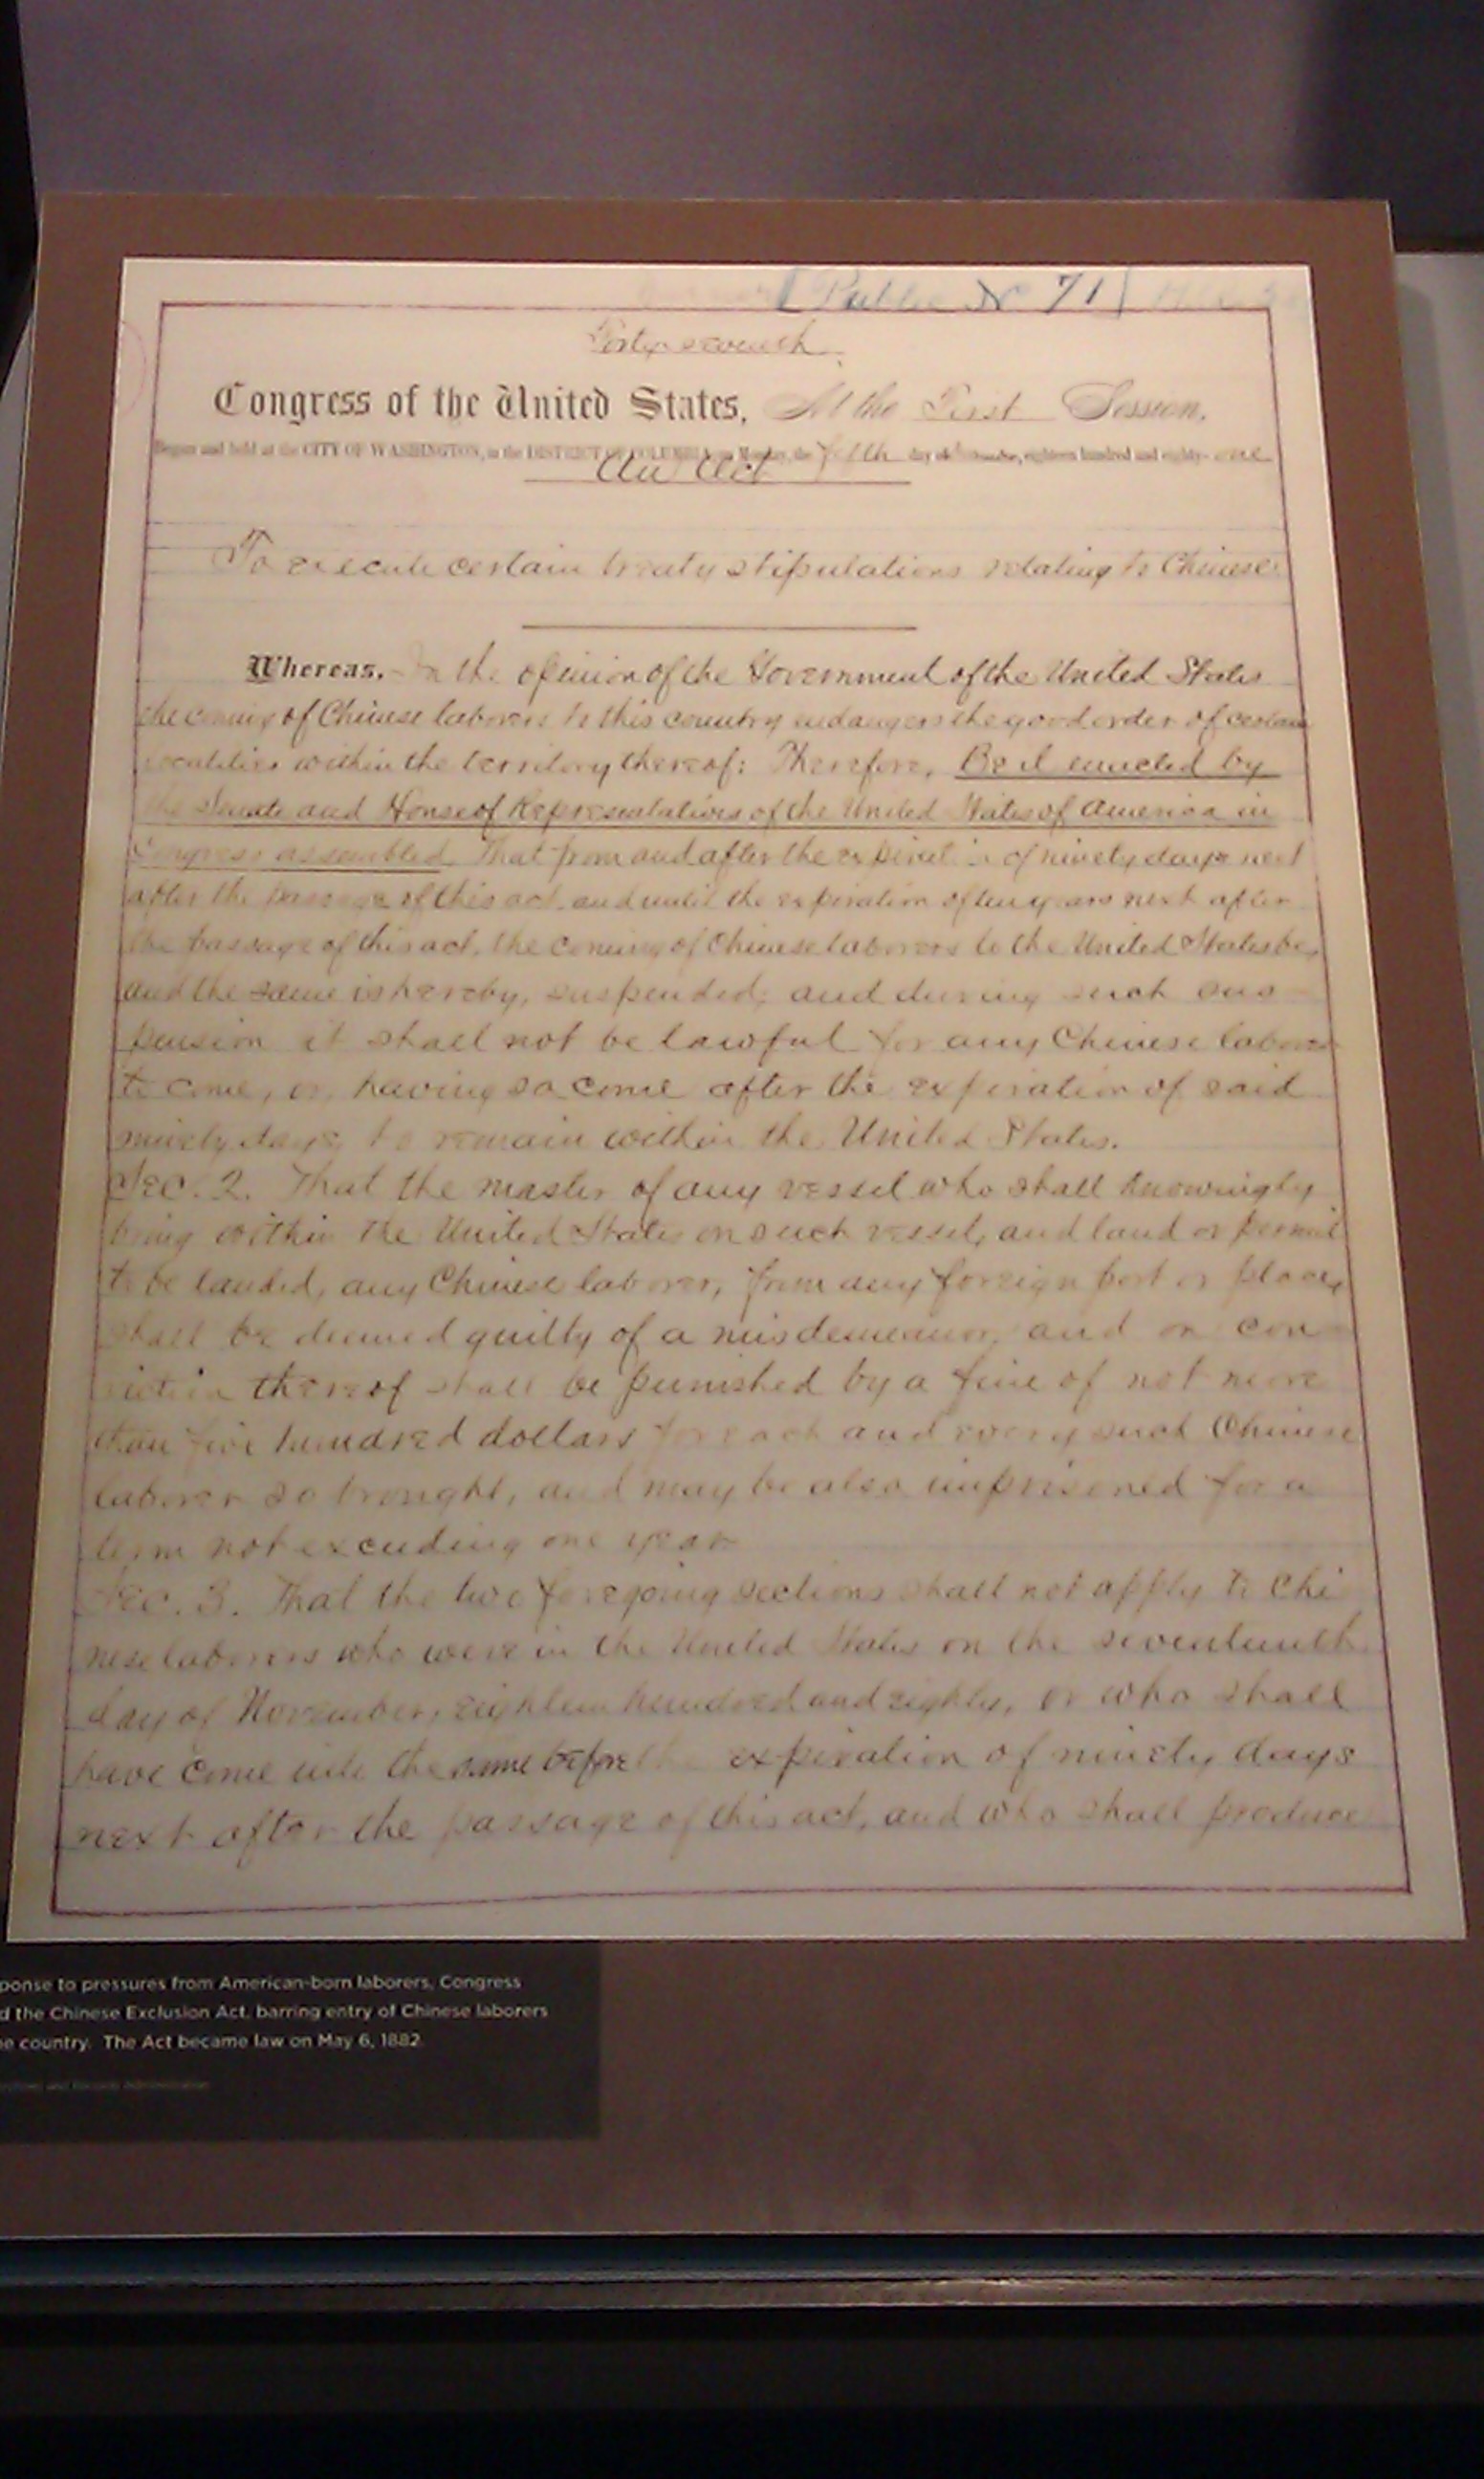 [Public No 71]
Forty seventh
Congress of the United States, At the First Session,
Begun and held at the CITY OF WASHINGTON, in the DISTRICT OF COLUMBIA, on Monday, the fifth day of December, eighteen hundred and eighty-one
An Act
To execute certain treaty stipulations relating to Chinese.
Whereas, In the opinion of the Government of the United States
the coming of Chinese laborers to this country endangers the good order of certain
localities within the territory thereof: Therefore, Be it enacted by
the Senate and House of Representatives of the United States of America in
Congress assembled, That from and after the expiration of ninety days next
after the passage of this act, and until the expiration of ten years next after
the passage of this act, the coming of Chinese laborers to the United States be,
and the same is hereby, suspended; and during such sus
pension it shall not be lawful for any Chinese laborer
to come, or, having so come after the expiration of said
ninety days, to remain within the United States.
Sec. 2. That the master of any vessel who shall knowingly
bring within the United States on such vessel, and land or permit
to be landed, any Chinese laborer, from any foreign port or place,
shall be deemed guilty of a misdemeanor, and on con
viction thereof shall be punished by a fine of not more
than five hundred dollars for each and every such Chinese
laborer so brought, and may be also imprisoned for a
term not exceeding one year
Sec. 3. That the two foregoing sections shall not apply to Chi
nese laborers who were in the United States on the seventeenth
day of November, eighteen hundred and eighty, or who shall
have come into the same before the expiration of ninety days
next after the passage of this act, and who shall produce
ponse to pressures from American-born laborers, Congress
d the Chinese Exclusion Act, barring entry of Chinese laborers
e country. The Act became law on May 6, 1882